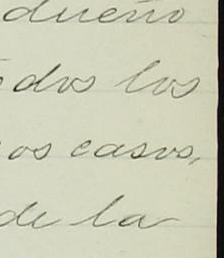 dueño
dos los
os casos,
de la